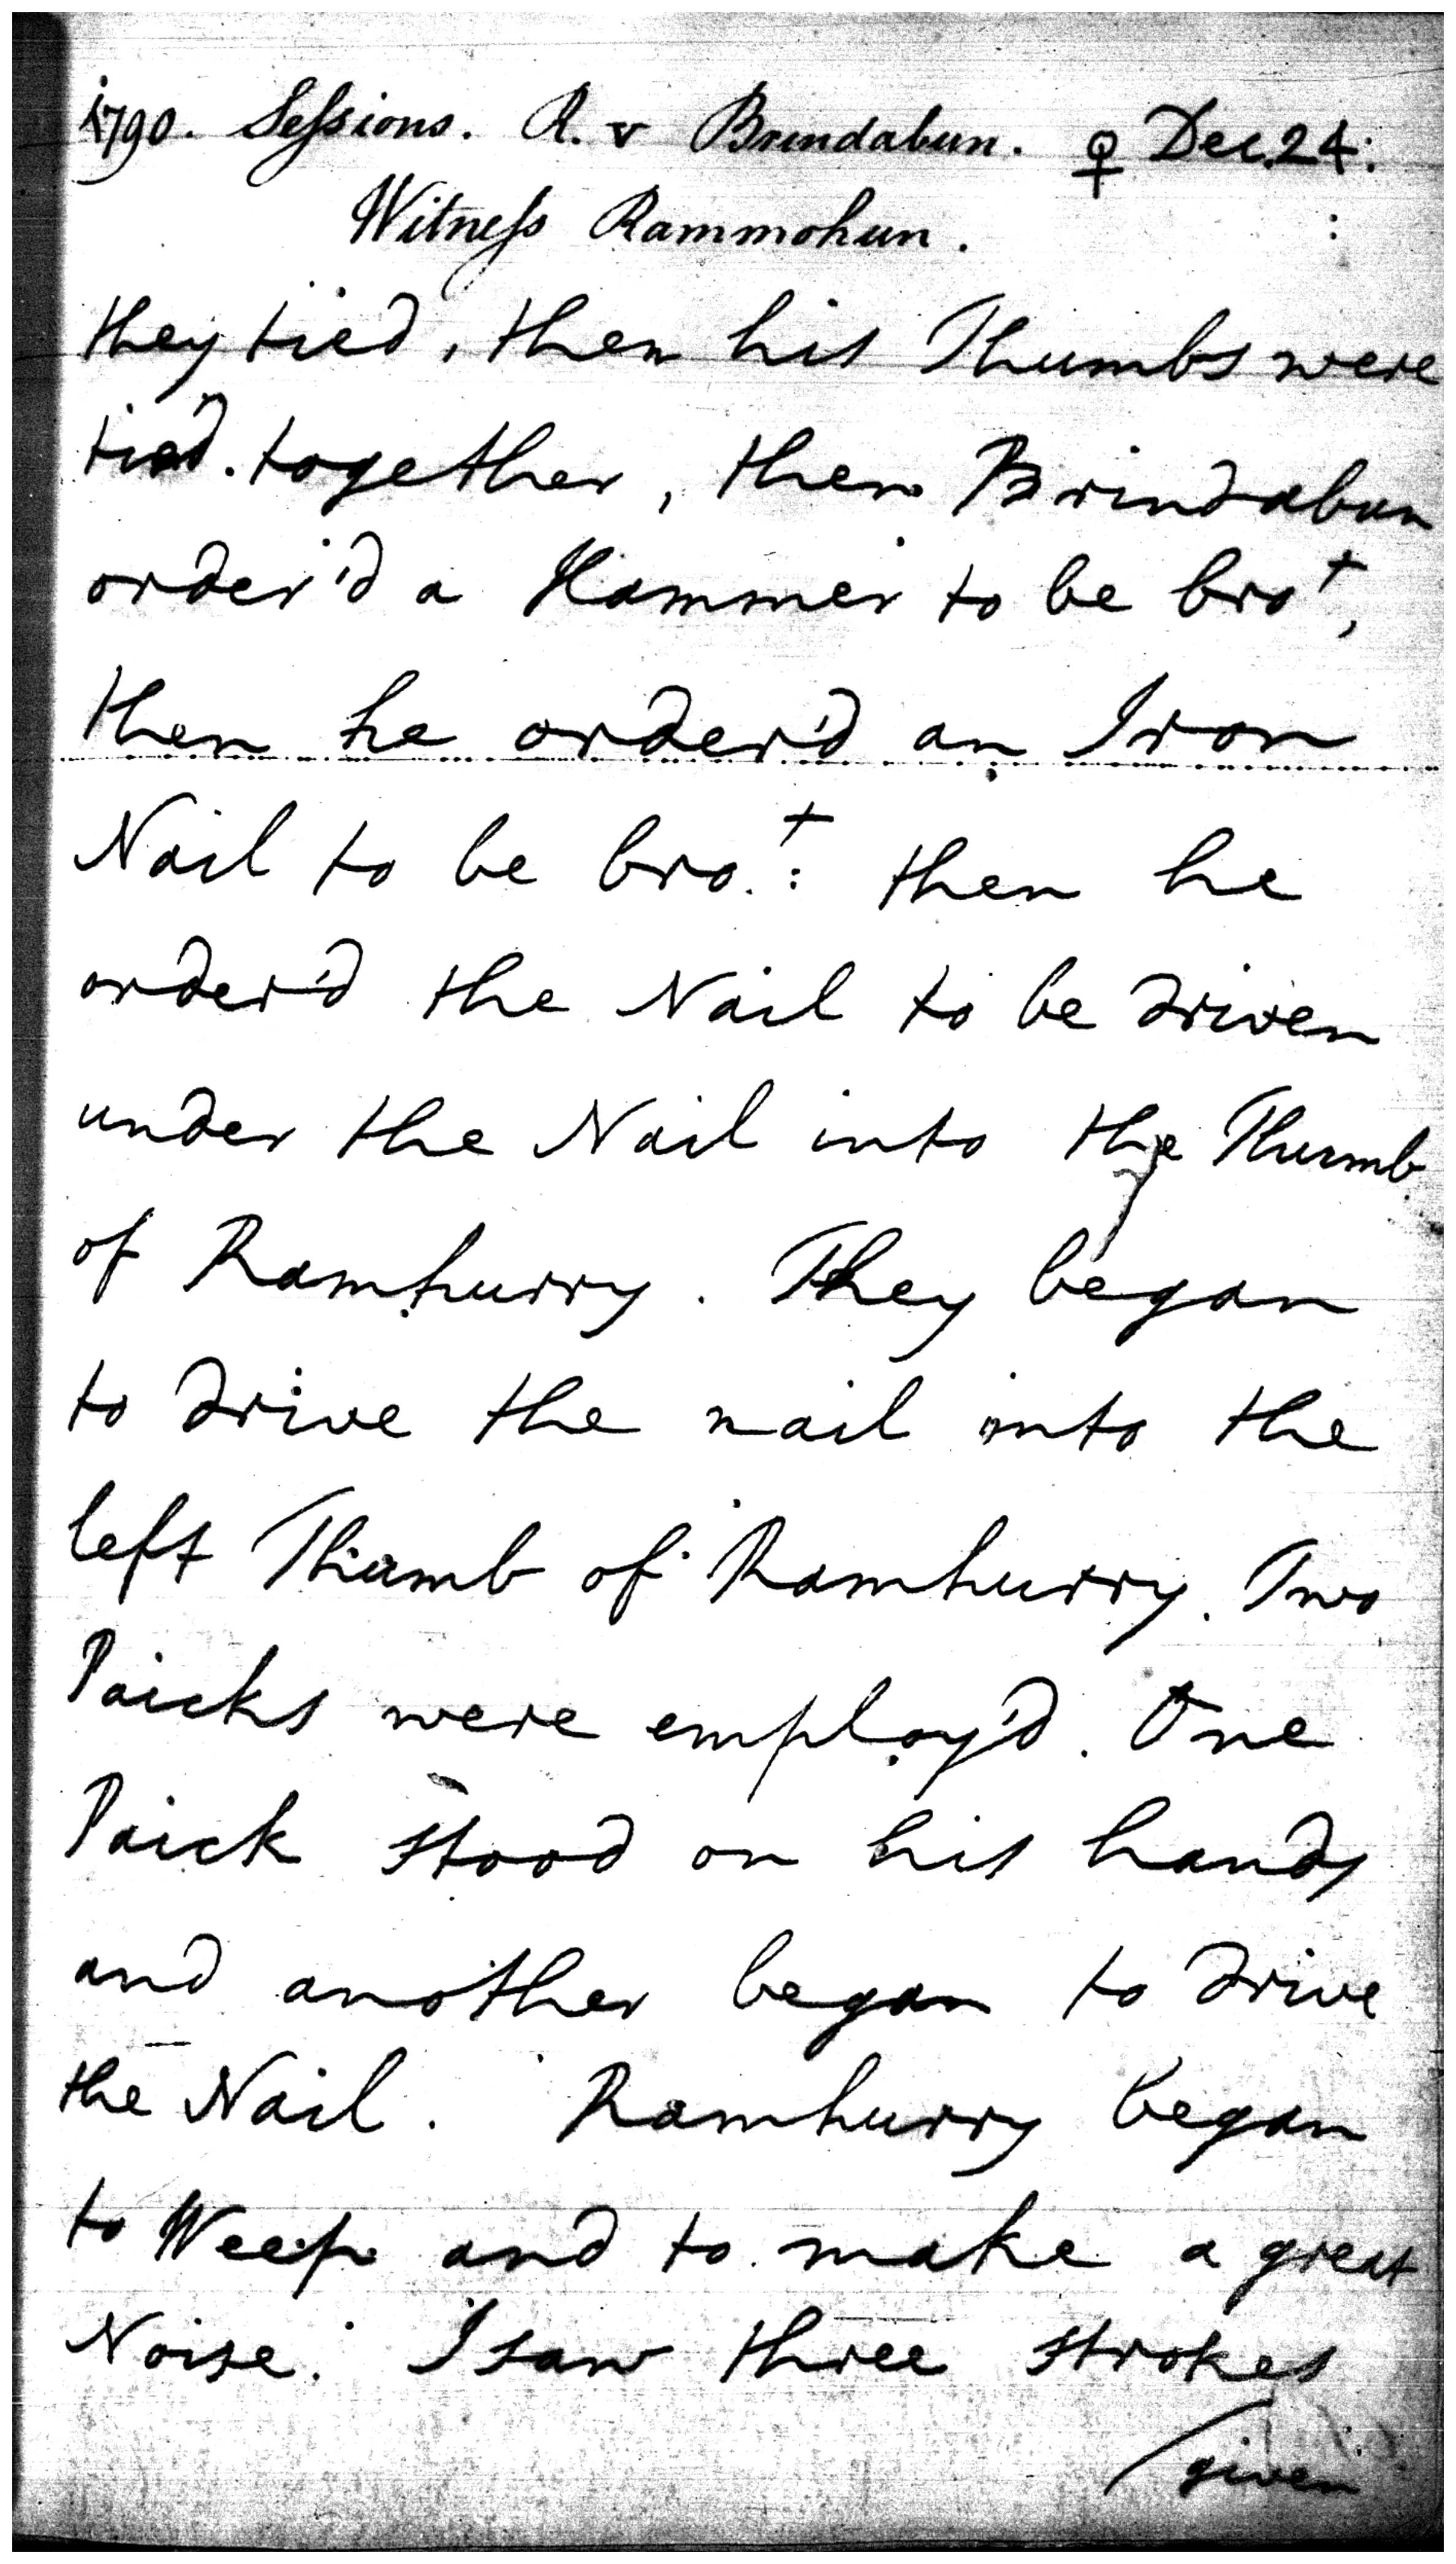 1790. Sessions. R. v Brindabun. ♀ Dec. 24:
Witness Rammohun.
they tied, then his Thumbs were
tied together, then Brindabun
order'd a Hammer to be bro^t,
then he order'd an Iron
Nail to be bro^t: then he
order'd the Nail to be driven
under the Nail into the Thumb
of Ramhurry. They began
to drive the nail into the
left Thumb of Ramhurry. Two
Paicks were employ'd. One
Paick stood on his hands
and another began to drive
the Nail. Ramhurry began
to Weep and to make a great
Noise. I saw three strokes
/given